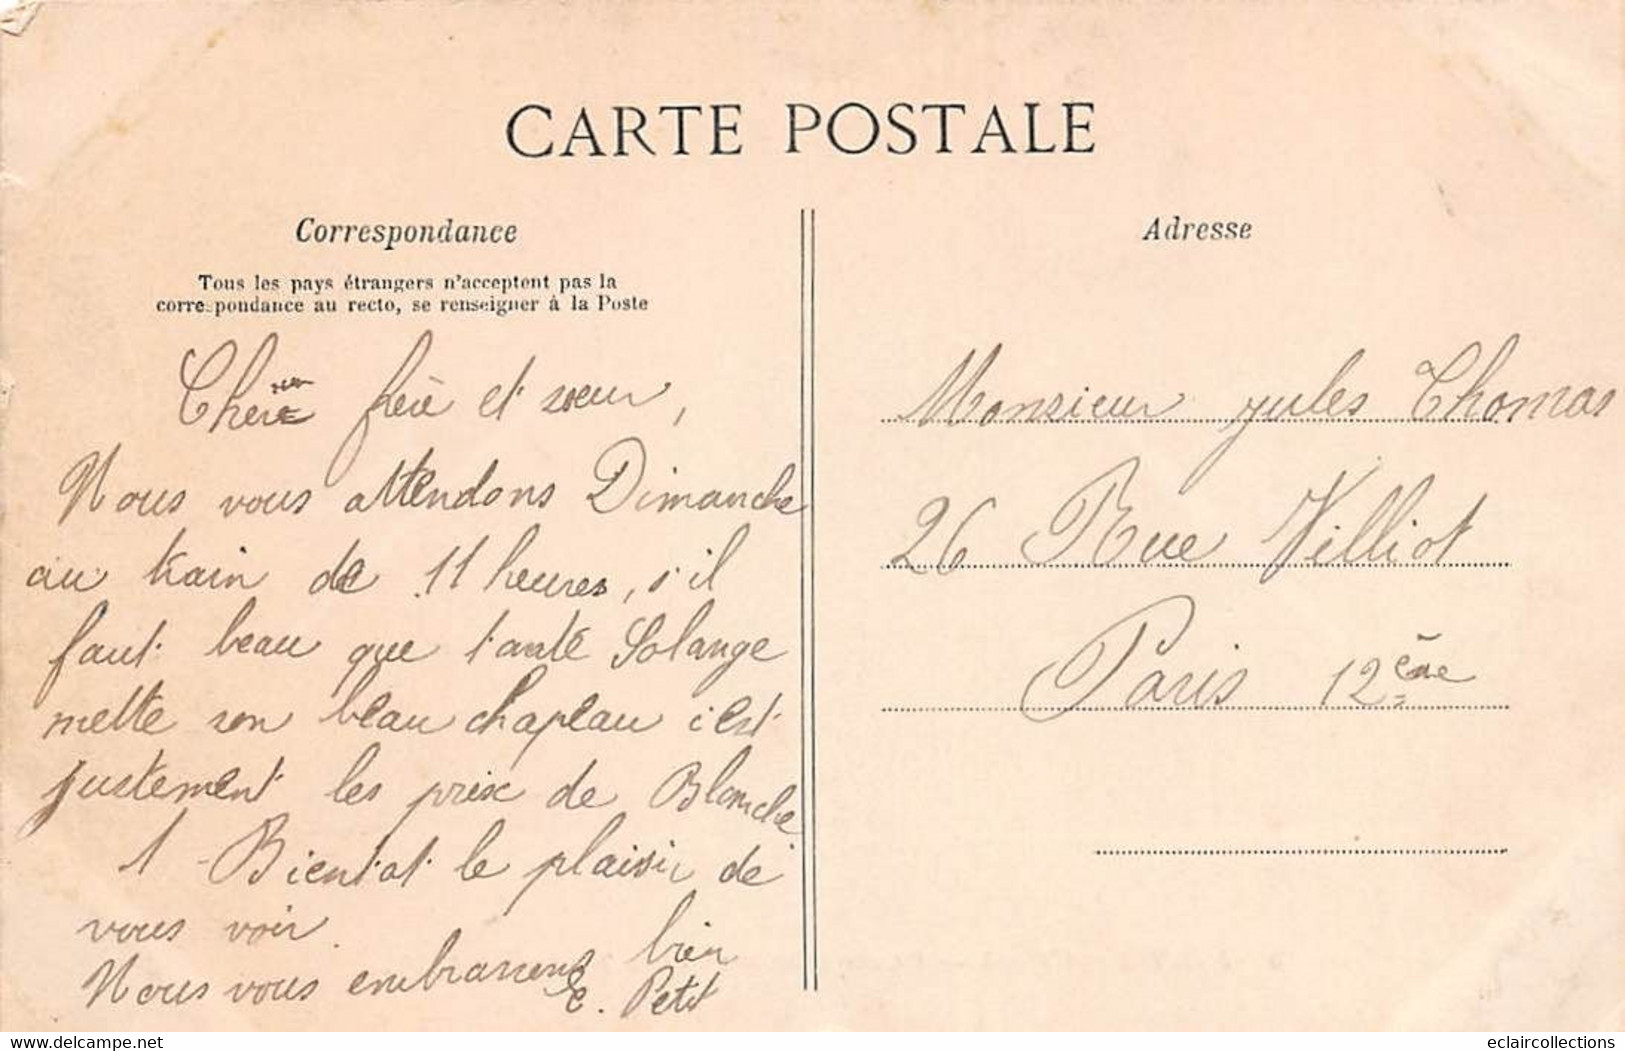 CARTE POSTALE
Correspondance
Tous les pays étrangers n'acceptent pas la
correspondance au recto, se renseigner à la Poste
frère et sœur,
Nous vous attendons Dimanche
au train de 11 heures, s'il
faut beau que tante Solange
mette son beau chapeau c'est
justement les prix de Blanche
1 - Bientot le plaisir de
vous voir.
Nous vous embrassons bien
E. Petit
Adresse
Monsieur Jules Thomas
26 Rue Villiot
Paris 12ème
delcampe.net
eclaircollections